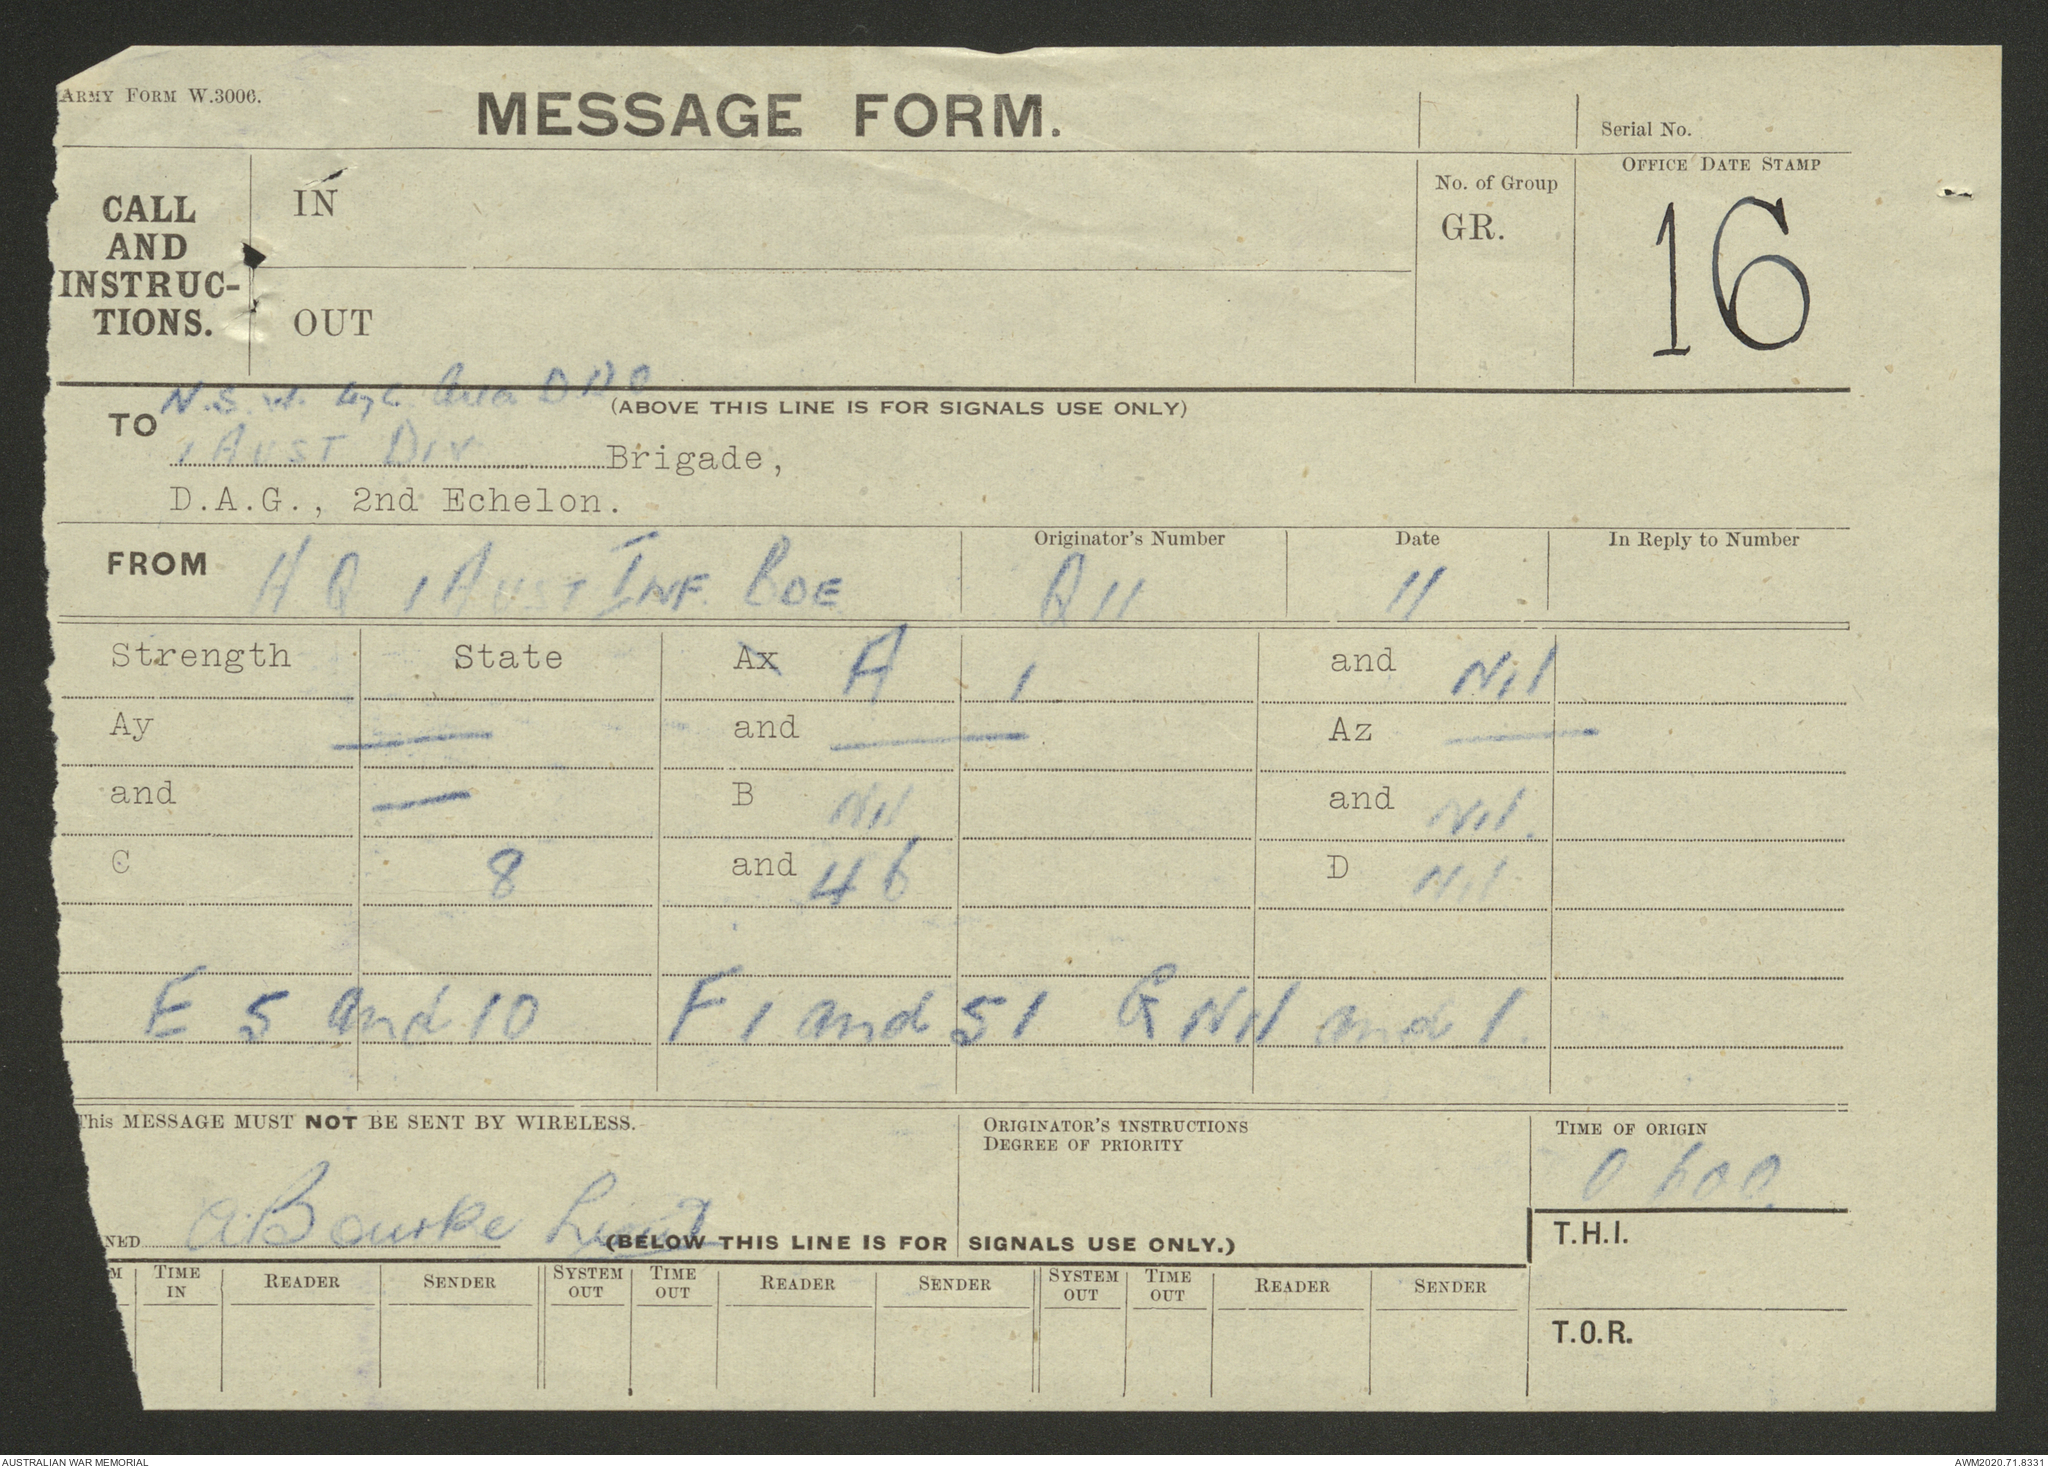 ARMY FORM W.3006.
MESSAGE FORM.
Serial No.
CALL
AND
INSTRUC-
TIONS.
IN
OUT
No. of Group
GR.
OFFICE DATE STAMP
16
N.S.W. L of C Area DRO
(ABOVE THIS LINE IS FOR SIGNALS USE ONLY)
TO
1 AUST DIV Brigade,
D.A.G., 2nd Echelon.
FROM HQ 1 AUST INF BDE
Originator's Number
A11
Date
11
In Reply to Number
Strength State Ax A 1 and Nil
Ay — and — Az —
and — B Nil and Nil.
C 8 and 46 D Nil
E 5 and 10 F 1 and 51 G Nil and 1.
This MESSAGE MUST NOT BE SENT BY WIRELESS.
ORIGINATOR'S INSTRUCTIONS
DEGREE OF PRIORITY
TIME OF ORIGIN
0600
NED A Bourke Lieut
(BELOW THIS LINE IS FOR SIGNALS USE ONLY.)
T.H.I.
M TIME IN READER SENDER SYSTEM OUT TIME OUT READER SENDER SYSTEM OUT TIME OUT READER SENDER
T.O.R.
AUSTRALIAN WAR MEMORIAL
AWM2020.71.8331